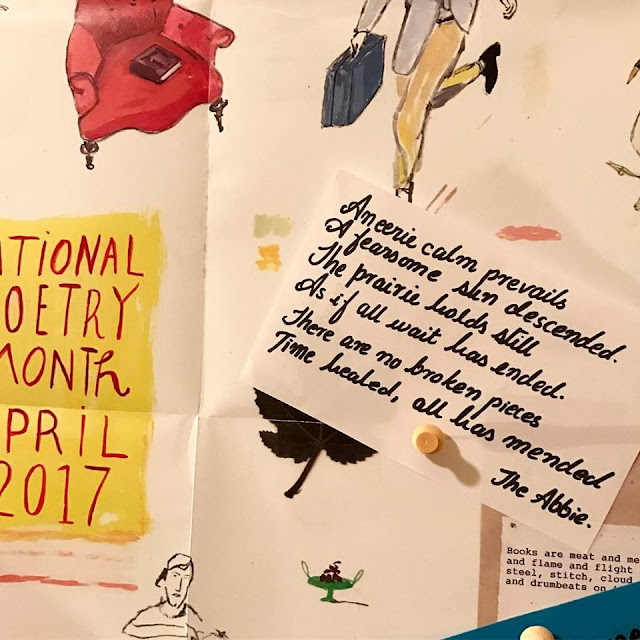 ATIONAL
OETRY
MONTH
APRIL
2017
An eerie calm prevails
A fearsome sun descended.
The prairie holds still
As if all wait has ended.
There are no broken pieces
Time healed, all has mended
The Abbie.
Books are meat and me
and flame and flight
steel, stitch, cloud
and drumbeats on